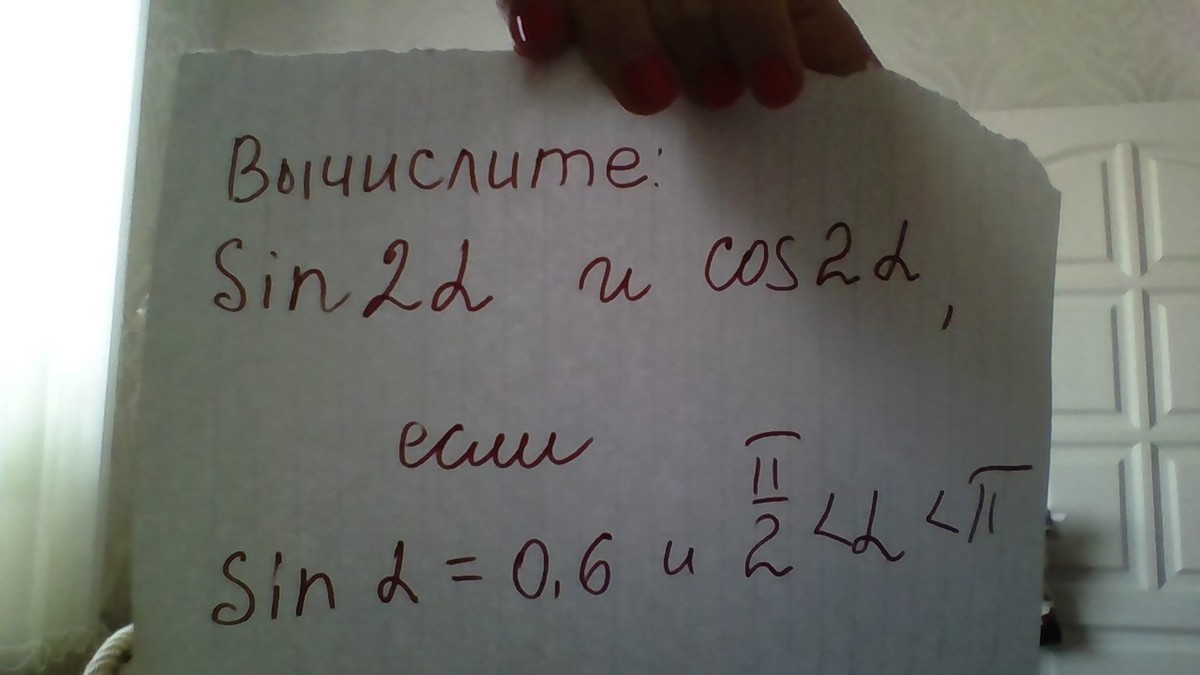 Вычислите:
Sin 2α и cos 2α,
если
Sin α = 0,6 и π/2 < α < π